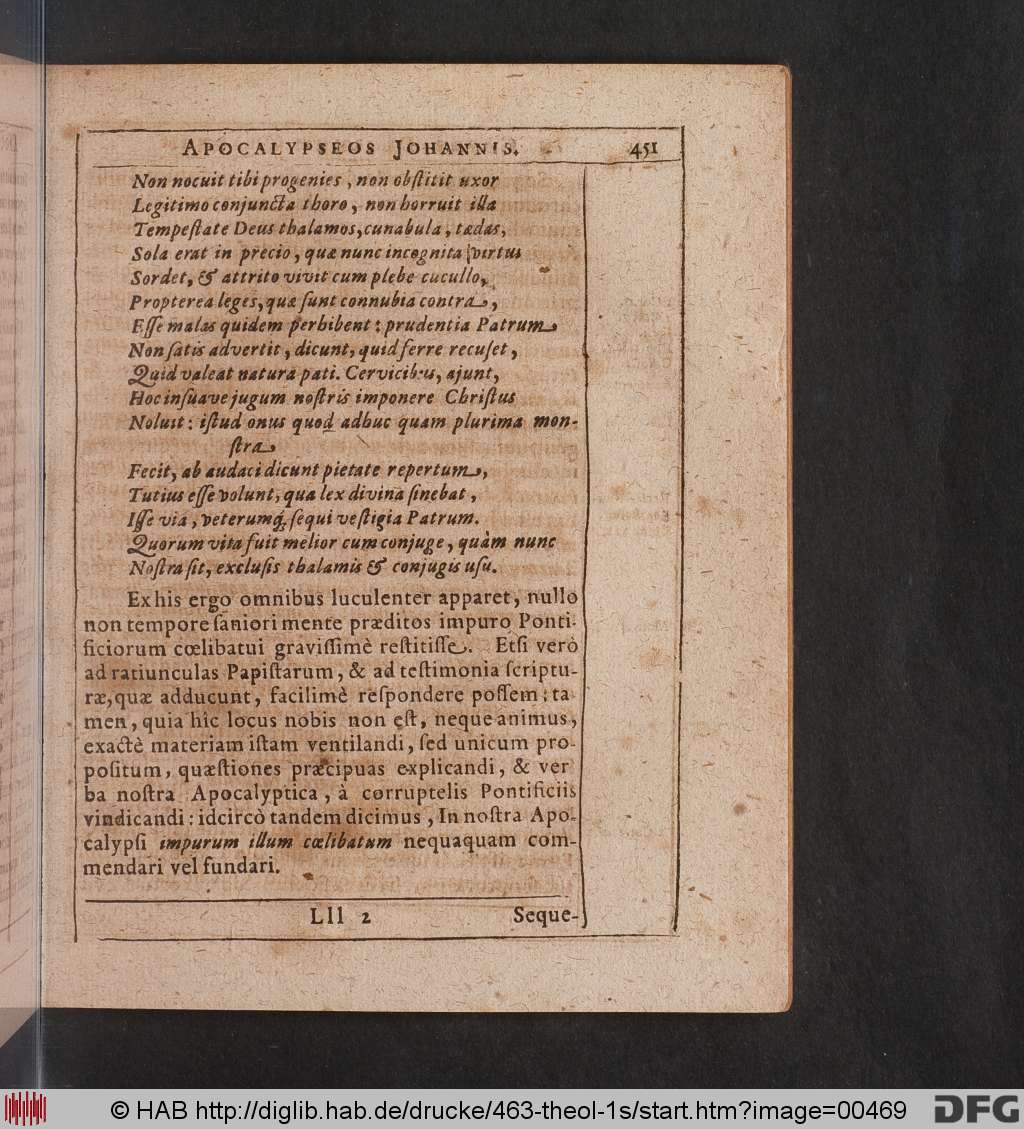 APOCALYPSEOS JOHANNIS. 451
Non nocuit tibi progenies, non obſtitit uxor
Legitimo conjuncta thoro, non horruit illa
Tempeſtate Deus thalamos, cunabula, tædas,
Sola erat in precio, quæ nunc incognita virtus
Sordet, & attrito vivit cum plebe cucullo,
Propterea leges, quæ ſunt connubia contra,
Eſſe malas quidem perhibent: prudentia Patrum
Non ſatis advertit, dicunt, quid ferre recuſet,
Quid valeat natura pati. Cervicibus, ajunt,
Hoc inſuave jugum noſtris imponere Chriſtus
Noluit: iſtud onus quod adhuc quam plurima mon-
ſtra
Fecit, ab audaci dicunt pietate repertum,
Tutius eſſe volunt, qua lex divina ſinebat,
Iſſe via, veterumq; ſequi veſtigia Patrum.
Quorum vita fuit melior cum conjuge, quàm nunc
Noſtra ſit, excluſis thalamis & conjugis uſu.
Ex his ergo omnibus luculenter apparet, nullo
non tempore ſaniori mente præditos impuro Ponti-
ficiorum cœlibatui graviſſimè reſtitiſſe. Etſi verò
ad ratiunculas Papiſtarum, & ad teſtimonia ſcriptu-
ræ, quæ adducunt, facilimè reſpondere poſſem: ta
men, quia hîc locus nobis non eſt, neque animus,
exactè materiam iſtam ventilandi, ſed unicum pro-
poſitum, quæſtiones præcipuas explicandi, & ver
ba noſtra Apocalyptica, à corruptelis Pontificiis
vindicandi: idcircò tandem dicimus, In noſtra Apo-
calypſi impurum illum cœlibatum nequaquam com-
mendari vel fundari.
Lll 2 Seque-
© HAB http://diglib.hab.de/drucke/463-theol-1s/start.htm?image=00469
DFG